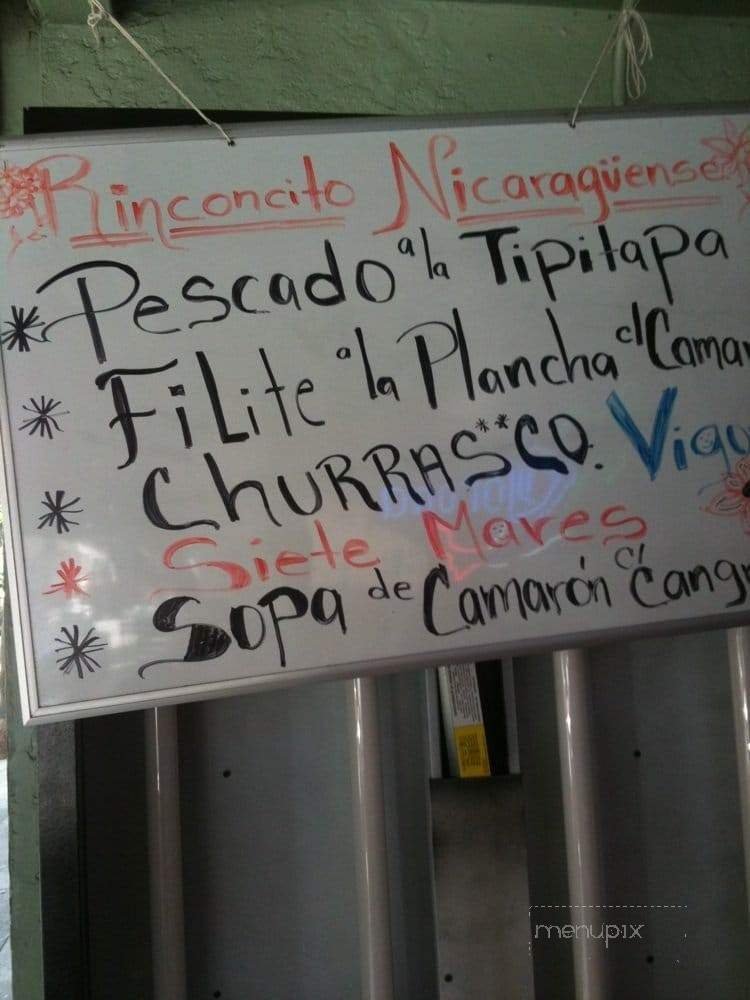 Rinconcito Nicaragüense
* Pescado a la Tipitapa
* FiLite a la Plancha c/ Camar
* ChURRASCO. Vigo
* Siete Mares
* Sopa de Camarón c/ Cangr
menupix